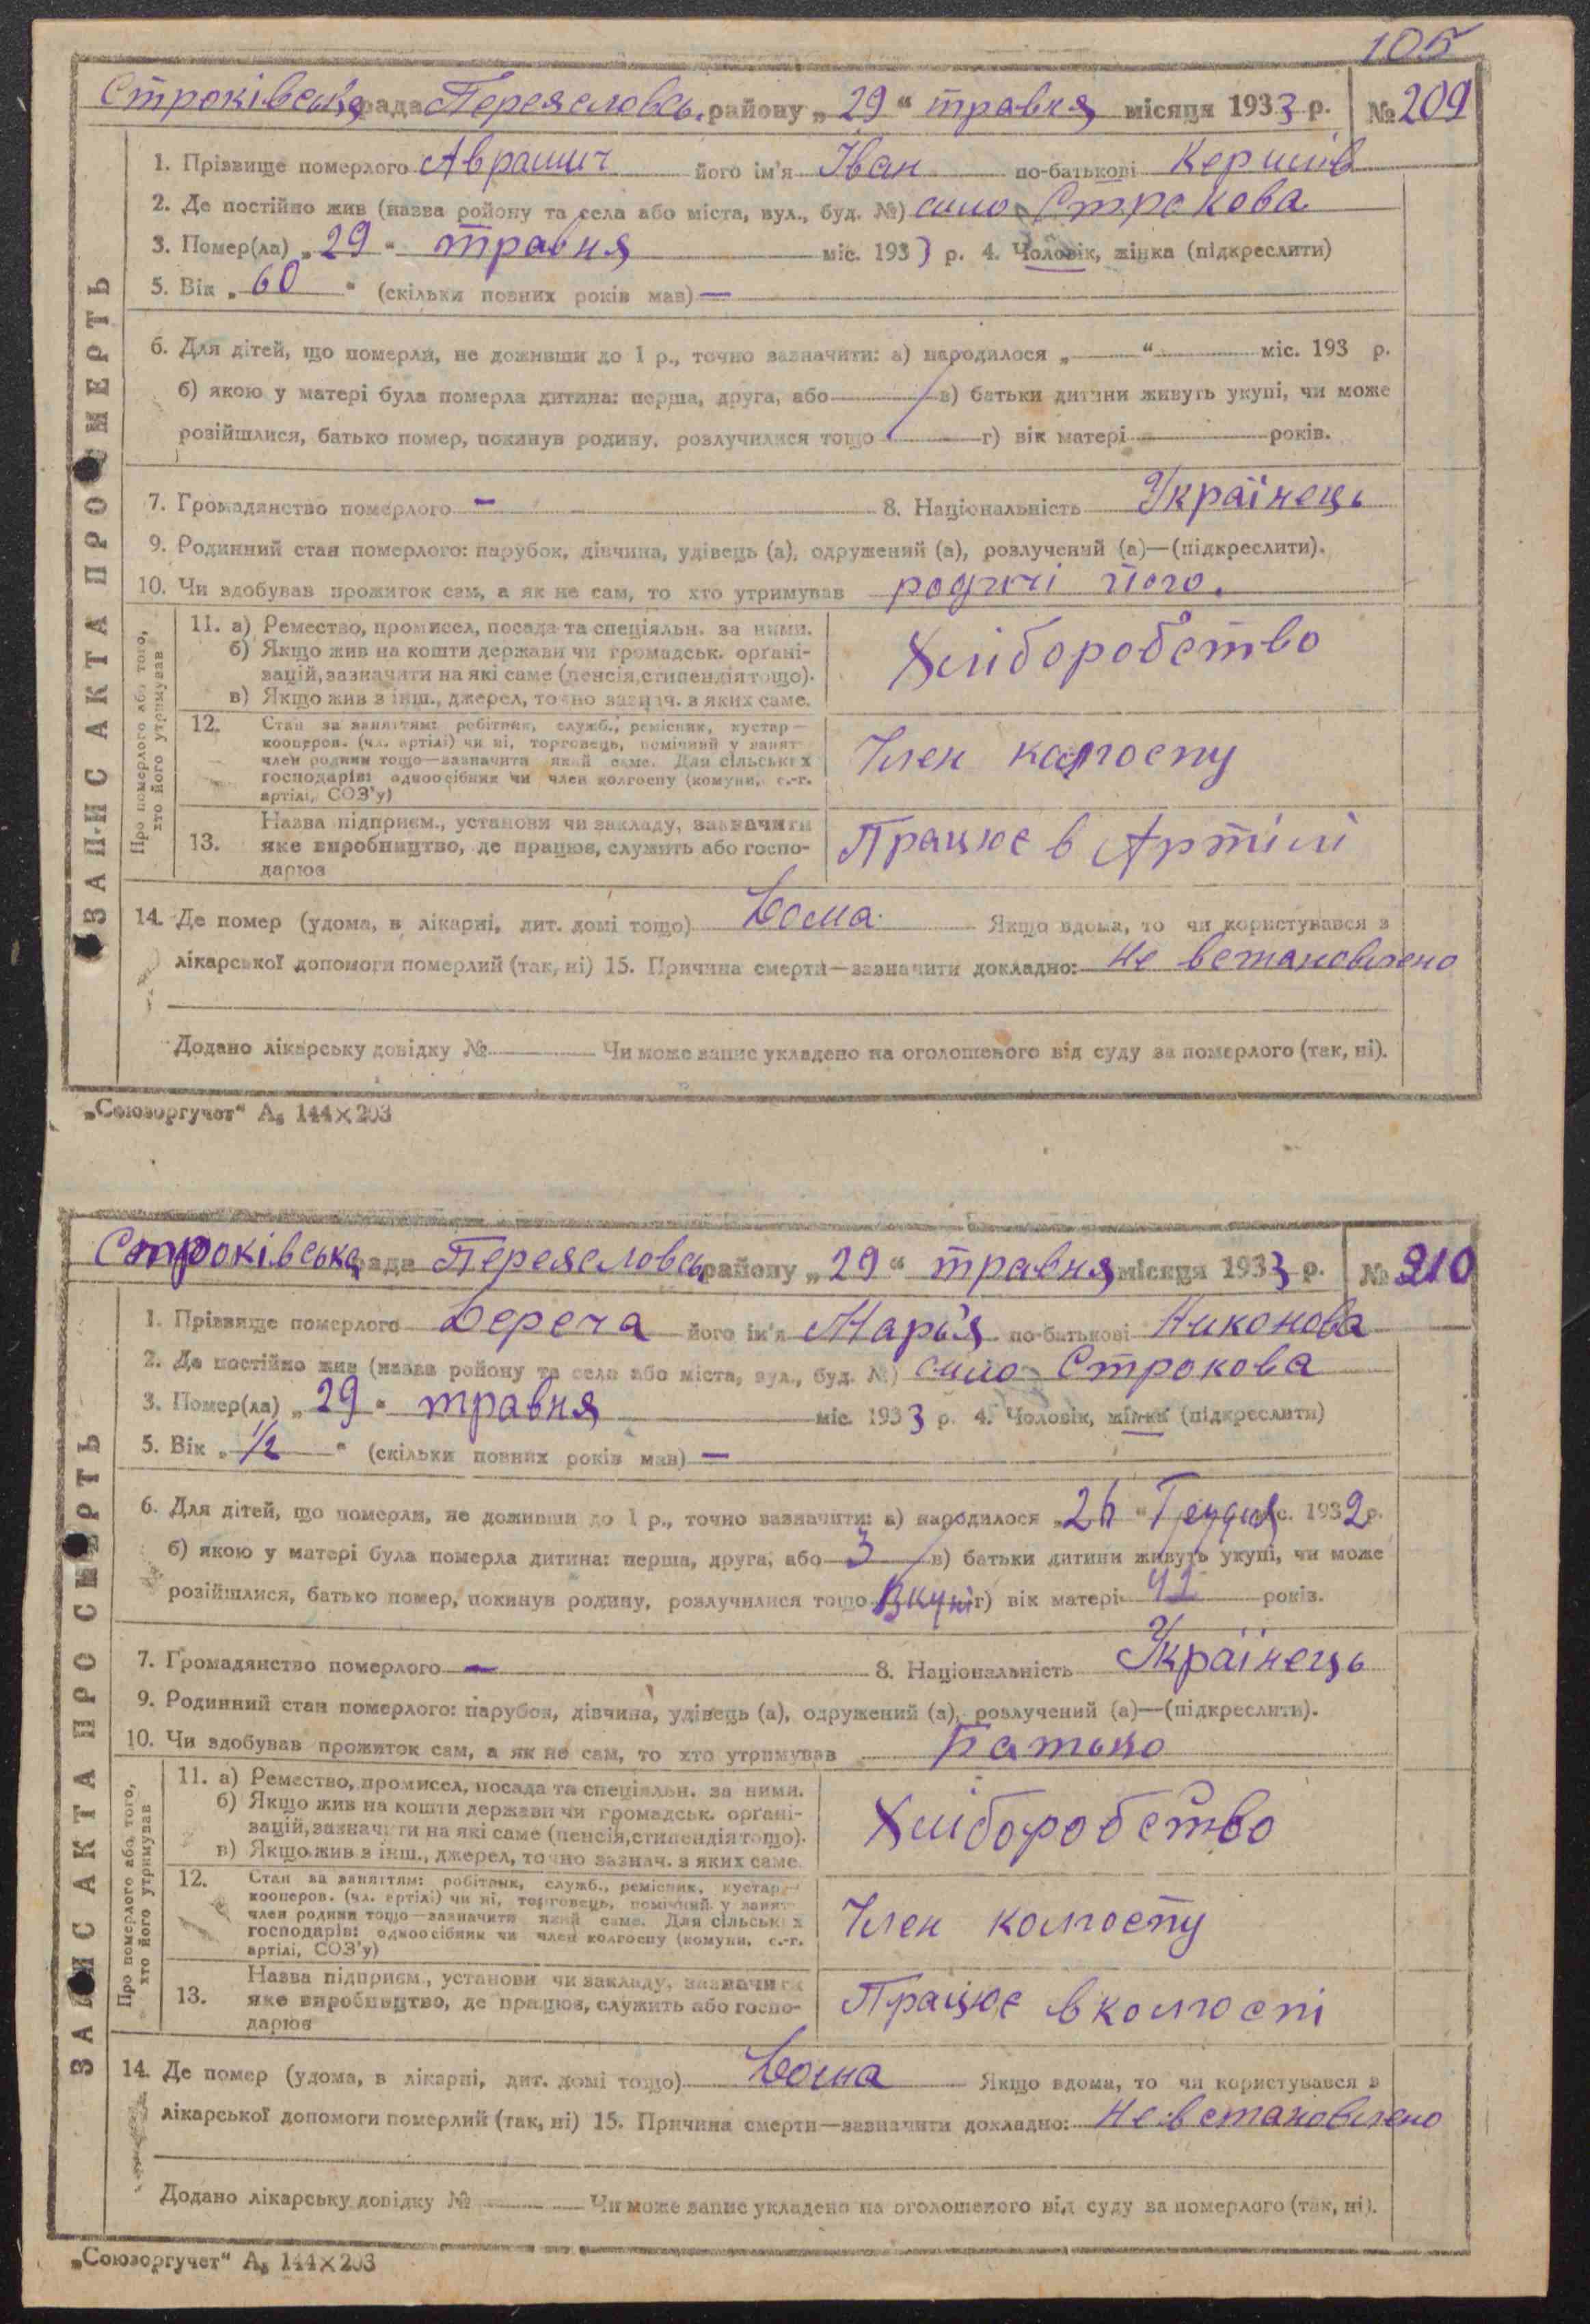 105
Строківська рада Переяславськ. району „29“ травня місяця 1933 р. № 209
ЗАПИС АКТА ПРО СМЕРТЬ
1. Прізвище померлого Аврашич його ім'я Іван по-батькові
2. Де постійно жив (назва ройону та села або міста, вул., буд. №) село Строкова
3. Помер(ла) „29“ травня міс. 1933 р. 4. Чоловік, жінка (підкреслити)
5. Вік „60“ (скільки повних років мав) —
6. Для дітей, що померли, не доживши до 1 р., точно зазначити: а) народилося „ “ міс. 193 р.
б) якою у матері була померла дитина: перша, друга, або в) батьки дитини живуть укупі, чи може
розійшлися, батько помер, покинув родину, розлучилися тощо г) вік матері років.
7. Громадянство померлого — 8. Національність Українець
9. Родинний стан померлого: парубок, дівчина, удівець (а), одружений (а), розлучений (а)—(підкреслити).
10. Чи здобував прожиток сам, а як не сам, то хто утримував родичі його.
Про померлого або того, хто його утримував
11. а) Ремество, промисел, посада та спеціяльн. за ними.
б) Якщо жив на кошти держави чи громадськ. орґані-
зацій, зазначити на які саме (пенсія, стипендія тощо).
в) Якщо жив з інш., джерел, точно зазнач. з яких саме.
Хліборобство
12. Стан за заняттям: робітник, служб., ремісник, кустар—
кооперов. (чл. артілі) чи ні, торговець, помічний у занят-
член родини тощо—зазначити який саме. Для сільських
господарів: одноосібник чи член колгоспу (комуни, с.-г.
артілі, СОЗ'у)
Член колгоспу
13. Назва підприєм., установи чи закладу, зазначити
яке виробництво, де працює, служить або госпо-
дарює
Працює в Артілі
14. Де помер (удома, в лікарні, дит. домі тощо) Дома Якщо вдома, то чи користувався з
лікарської допомоги померлий (так, ні) 15. Причина смерти—зазначити докладно: не встановлено
Додано лікарську довідку № Чи може запис укладено на оголошеного від суду за померлого (так, ні).
„Союзоргучет“ А₅ 144×203
Строківська рада Переяславськ району „29“ травня місяця 1933 р. № 210
ЗАПИС АКТА ПРО СМЕРТЬ
1. Прізвище померлого Дереча його ім'я Мар'я по-батькові Никонова
2. Де постійно жив (назва ройону та села або міста, вул., буд. №) село Строкова
3. Помер(ла) „29“ травня міс. 1933 р. 4. Чоловік, жінка (підкреслити)
5. Вік „1/2“ (скільки повних років мав) —
6. Для дітей, що померли, не доживши до 1 р., точно зазначити: а) народилося „26“ Грудня міс. 1932 р.
б) якою у матері була померла дитина: перша, друга, або 3 в) батьки дитини живуть укупі, чи може
розійшлися, батько помер, покинув родину, розлучилися тощо Вкупі г) вік матері 42 років.
7. Громадянство померлого — 8. Національність Українець
9. Родинний стан померлого: парубок, дівчина, удівець (а), одружений (а), розлучений (а)—(підкреслити).
10. Чи здобував прожиток сам, а як не сам, то хто утримував Батько
Про померлого або того, хто його утримував
11. а) Ремество, промисел, посада та спеціяльн. за ними.
б) Якщо жив на кошти держави чи громадськ. орґані-
зацій, зазначити на які саме (пенсія, стипендія тощо).
в) Якщо жив з інш., джерел, точно зазнач. з яких саме.
Хліборобство
12. Стан за заняттям: робітник, служб., ремісник, кустар—
кооперов. (чл. артілі) чи ні, торговець, помічний у занят-
член родини тощо—зазначити який саме. Для сільських
господарів: одноосібник чи член колгоспу (комуни, с.-г.
артілі, СОЗ'у)
Член колгоспу
13. Назва підприєм., установи чи закладу, зазначити
яке виробництво, де працює, служить або госпо-
дарює
Працює в колгоспі
14. Де помер (удома, в лікарні, дит. домі тощо) Дома Якщо вдома, то чи користувався з
лікарської допомоги померлий (так, ні) 15. Причина смерти—зазначити докладно: не встановлено
Додано лікарську довідку № Чи може запис укладено на оголошеного від суду за померлого (так, ні).
„Союзоргучет“ А₅ 144×203